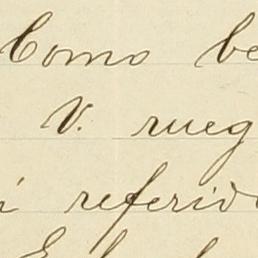 Como be
V. rueg
i referid